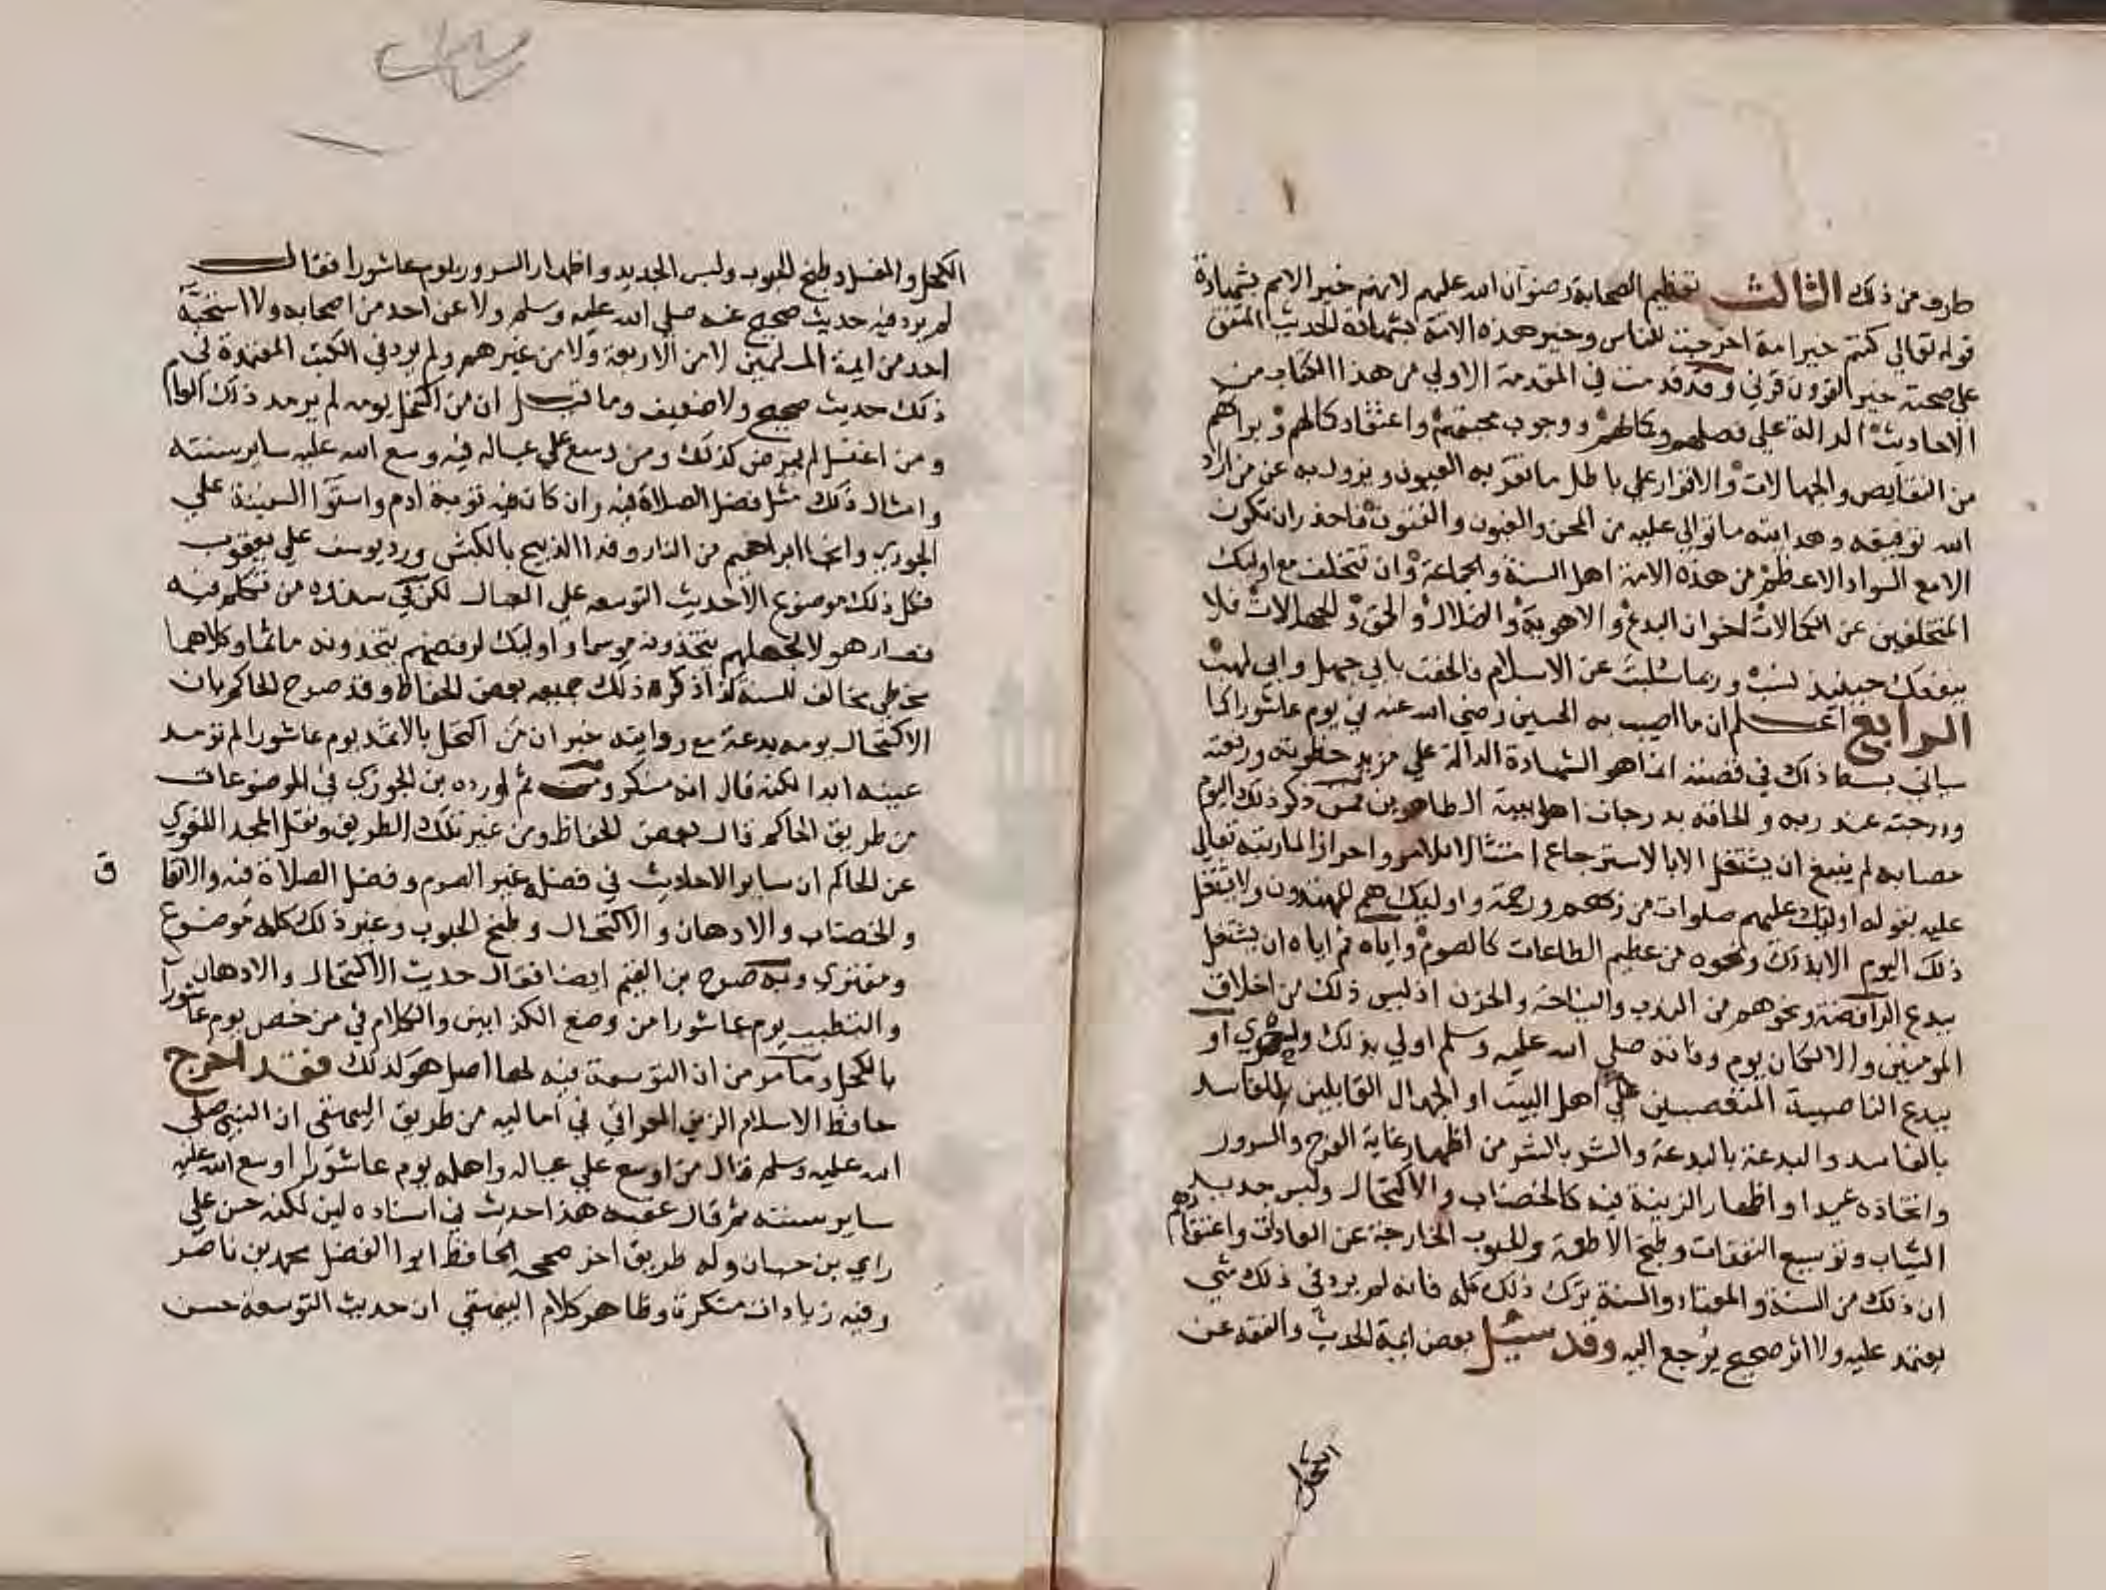 ١
طرف من ذلك الثالث تعظيم الصحابة رضوان الله عليهم لانهم خير الامم بشهادة
قوله تعالي كنتم خير امة اخرجت للناس وخير هذه الامة بشهادة الحديث المتفق
علي صحته خير القرون قرني وقد قدمت في المقدمة الاولي من هذا الكتاب من
الاحاديث الدالة علي فضلهم وكمالهم ووجوب محبتهم واعتقاد كمالهم وبراتهم
من النقايص والجهالات والاقرار علي باطل ما تقر به العيون ويزول به عن من اراد
الله توفيقه وهدايته ما توالي عليه من المحن والغبون والفتون فاحذر ان تكون
الا مع السواد الاعظم من هذه الامة اهل السنة والجماعة وان تتخلف مع اوليك
المتخلفين عن الكمالات اخوان البدع والاهوية والضلال والحمق والجهالات فلا
ينفعك حينيذ نسب وربما سلبت عن الاسلام فالحقت بابي جهل وابي لهب
الرابع اعلم ان ما اصيب به الحسين رضي الله عنه في يوم عاشورا كما
سياتي بسط ذلك في قصته انما هو الشهادة الدالة علي مزيد حظوته ورفعته
ودرجته عند ربه والحاقه بدرجات اهل بيته الطاهرين فمن ذكر ذلك اليوم
مصابه لم ينبغ ان يشتغل الا بالاسترجاع امتثالا للامر واحرازا لما رتبه تعالي
عليه بقوله اوليك عليهم صلوات من ربهم ورحمة واوليك هم المهتدون ولا يشتغل
ذلك اليوم الا بذلك ونحوه من عظيم الطاعات كالصوم واياه ثم اياه ان يشتغل
ببدع الرافضة ونحوهم من الندب والنياحة والحزن اذ ليس ذلك من اخلاق
المومنين والا لكان يوم وفاته صلي الله عليه وسلم اولي بذلك واحري او
ببدع الناصبة المتعصبين علي اهل البيت او الجهال القابلين للفاسد
بالفاسد والبدعة بالبدعة والشر بالشر من اظهار غاية الفرح والسرور
واتخاذه عيدا واظهار الزينة فيه كالخضاب والاكتحال ولبس جديد
الثياب وتوسيع النفقات وطبخ الاطعمة والحبوب الخارجة عن العادات واعتقادهم
ان ذلك من السنة والمعتاد والسنة ترك ذلك كله فانه لم يرد في ذلك شي
يعتمد عليه ولا اثر صحيح يرجع اليه وقد سئيل بعض ايمة الحديث والفقه عن
الكحل والغسل وطبخ الحبوب ولبس الجديد واظهار السرور يوم عاشورا فقال
لم يرد فيه حديث صحيح عنه صلي الله عليه وسلم ولا عن احد من اصحابه ولا استحبه
احد من ايمة المسلمين لا من الاربعة ولا من غيرهم ولم يرد في الكتب المعتمدة في
ذلك حديث صحيح ولا ضعيف وما قيل ان من اكتحل يومه لم يرمد ذلك العام
ومن اغتسل لم يمرض كذلك ومن وسع علي عياله فيه وسع الله عليه ساير سنته
وامثال ذلك مثل فضل الصلاة فيه وان كان فيه توبة ادم واستوا السفينة علي
الجودي وانجا ابراهيم من النار وفدا الذبيح بالكبش ورد يوسف علي يعقوب
فكل ذلك موضوع الا حديث التوسعة علي العيال لكن في سنده من تكلم فيه
فصار هولا لجهلهم يتخذونه موسما واوليك لرفضهم يتخذونه ماتما وكلاهما
مخطي مخالف للسنة كذا ذكر ذلك جميعه بعض الحفاظ وقد صرح الحاكم بان
الاكتحال يومه بدعة مع روايته خبر ان من اكتحل بالاثمد يوم عاشورا لم ترمد
عينه ابدا لكنه قال انه منكر ومن ثم اورده بن الجوزي في الموضوعات
من طريق الحاكم قال بعض الحفاظ ومن غير تلك الطريق ونقل المجد اللغوي
عن الحاكم ان ساير الاحاديث في فضله غير الصوم وفضل الصلاة فيه والانفا
ق
والخضاب والادهان والاكتحال وطبخ الحبوب وغير ذلك كله موضوع
ومفتري وبه صرح بن القيم ايضا فقال حديث الاكتحال والادهان
والتطيب يوم عاشورا من وضع الكذابين والكلام في من خص يوم عاشورا
بالكحل وما مر من ان التوسعة فيه لها اصل هو كذلك فقد اخرج
حافظ الاسلام الزين العراقي في اماليه من طريق البيهقي ان النبي صلي
الله عليه وسلم قال من اوسع علي عياله واهله يوم عاشورا اوسع الله عليه
ساير سنته ثم قال عقبه هذا حديث في اسناده لين لكنه حسن علي
راي بن حبان وله طريق اخر صححه الحافظ ابوا الفضل محمد بن ناصر
وفيه زيادات منكرة وظاهر كلام البيهقي ان حديث التوسعة حسن